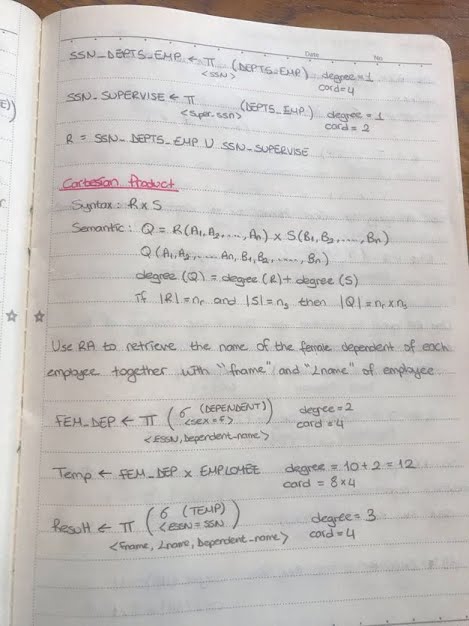 Date No
SSN_DEPTS_EMP ← π (DEPTS_EMP) degree = 1
<SSN> card = 4
SSN_SUPERVISE ← π (DEPTS_EMP) degree = 1
<Super_ssn> card = 2
R = SSN_DEPTS_EMP ∪ SSN_SUPERVISE
Cartesian Product
Syntax: R x S
Semantic: Q = R(A1, A2, ..., An) x S(B1, B2, ..., Bn)
Q(A1, A2, ... An, B1, B2, ..., Bn)
degree (Q) = degree (R) + degree (S)
If |R| = nr and |S| = ns then |Q| = nr x ns
Use RA to retrieve the name of the female dependent of each
employee together with "fname" and "Lname" of employee.
FEM_DEP ← π ( σ (DEPENDENT) ) degree = 2
<sex = F> card = 4
<ESSN, Dependent_name>
Temp ← FEM_DEP x EMPLOYEE degree = 10 + 2 = 12
card = 8 x 4
Result ← π ( σ (TEMP) ) degree = 3
<ESSN = SSN card = 4
<Fname, Lname, Dependent_name>